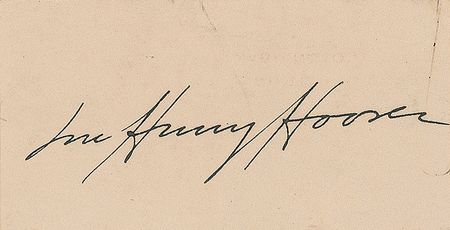 Lou Henry Hoover